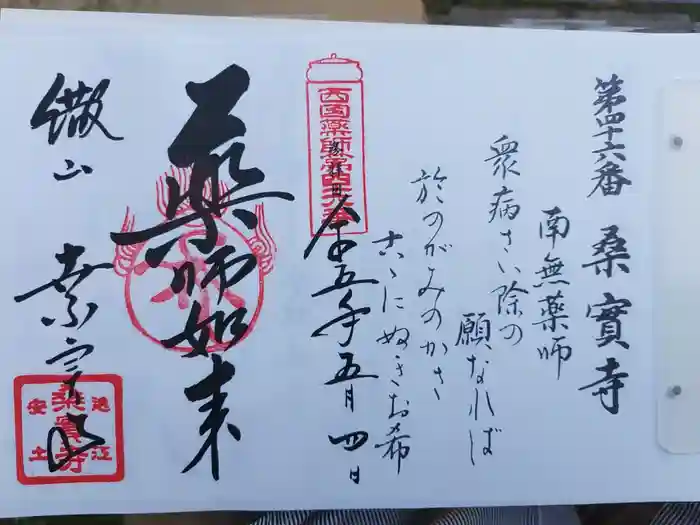 第四十六番 桑實寺
南無薬師
衆病さい除の
願なれば
於のがみのかさ
古ゝにぬぎお希
西国薬師第四十六番
奉拝
令和五年五月四日
薬師如来
繖山
桑実寺
近江
桑實寺
安土